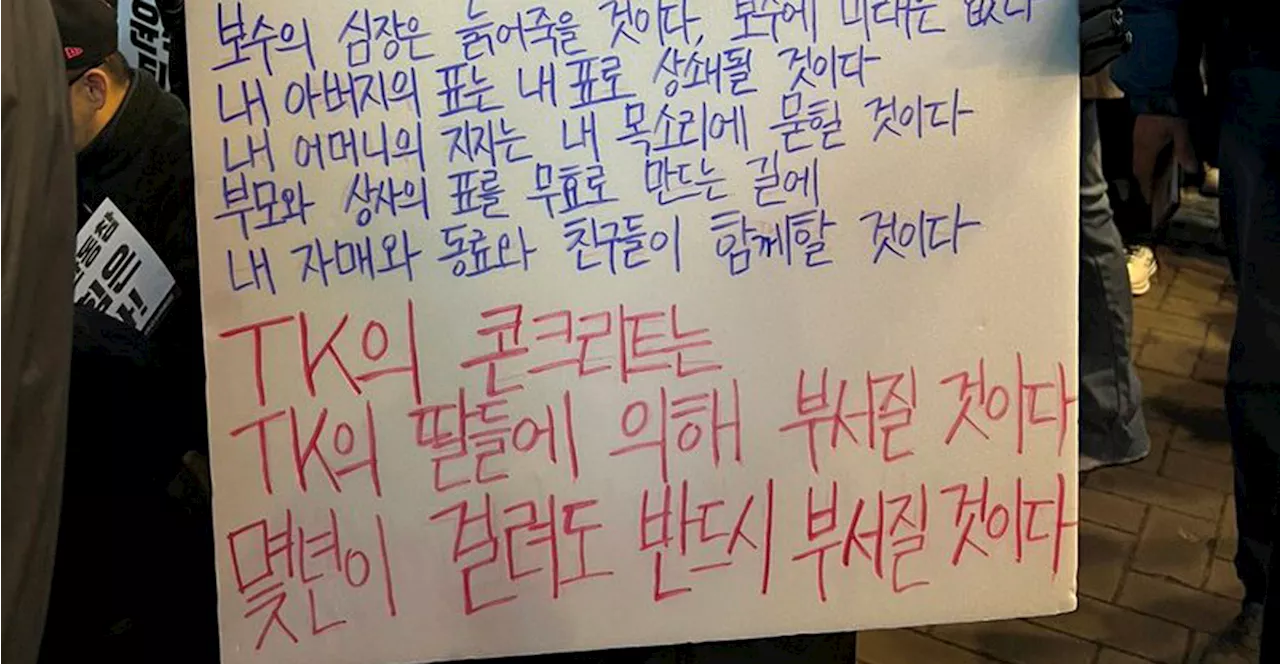 보수의 심장은 늙어죽을 것이다, 보수에 미래는 없다
내 아버지의 표는 내 표로 상쇄될 것이다
내 어머니의 지지는 내 목소리에 묻힐 것이다
부모와 상사의 표를 무효로 만드는 길에
내 자매와 동료와 친구들이 함께할 것이다
TK의 콘크리트는
TK의 딸들에 의해 부서질 것이다
몇년이 걸려도 반드시 부서질 것이다